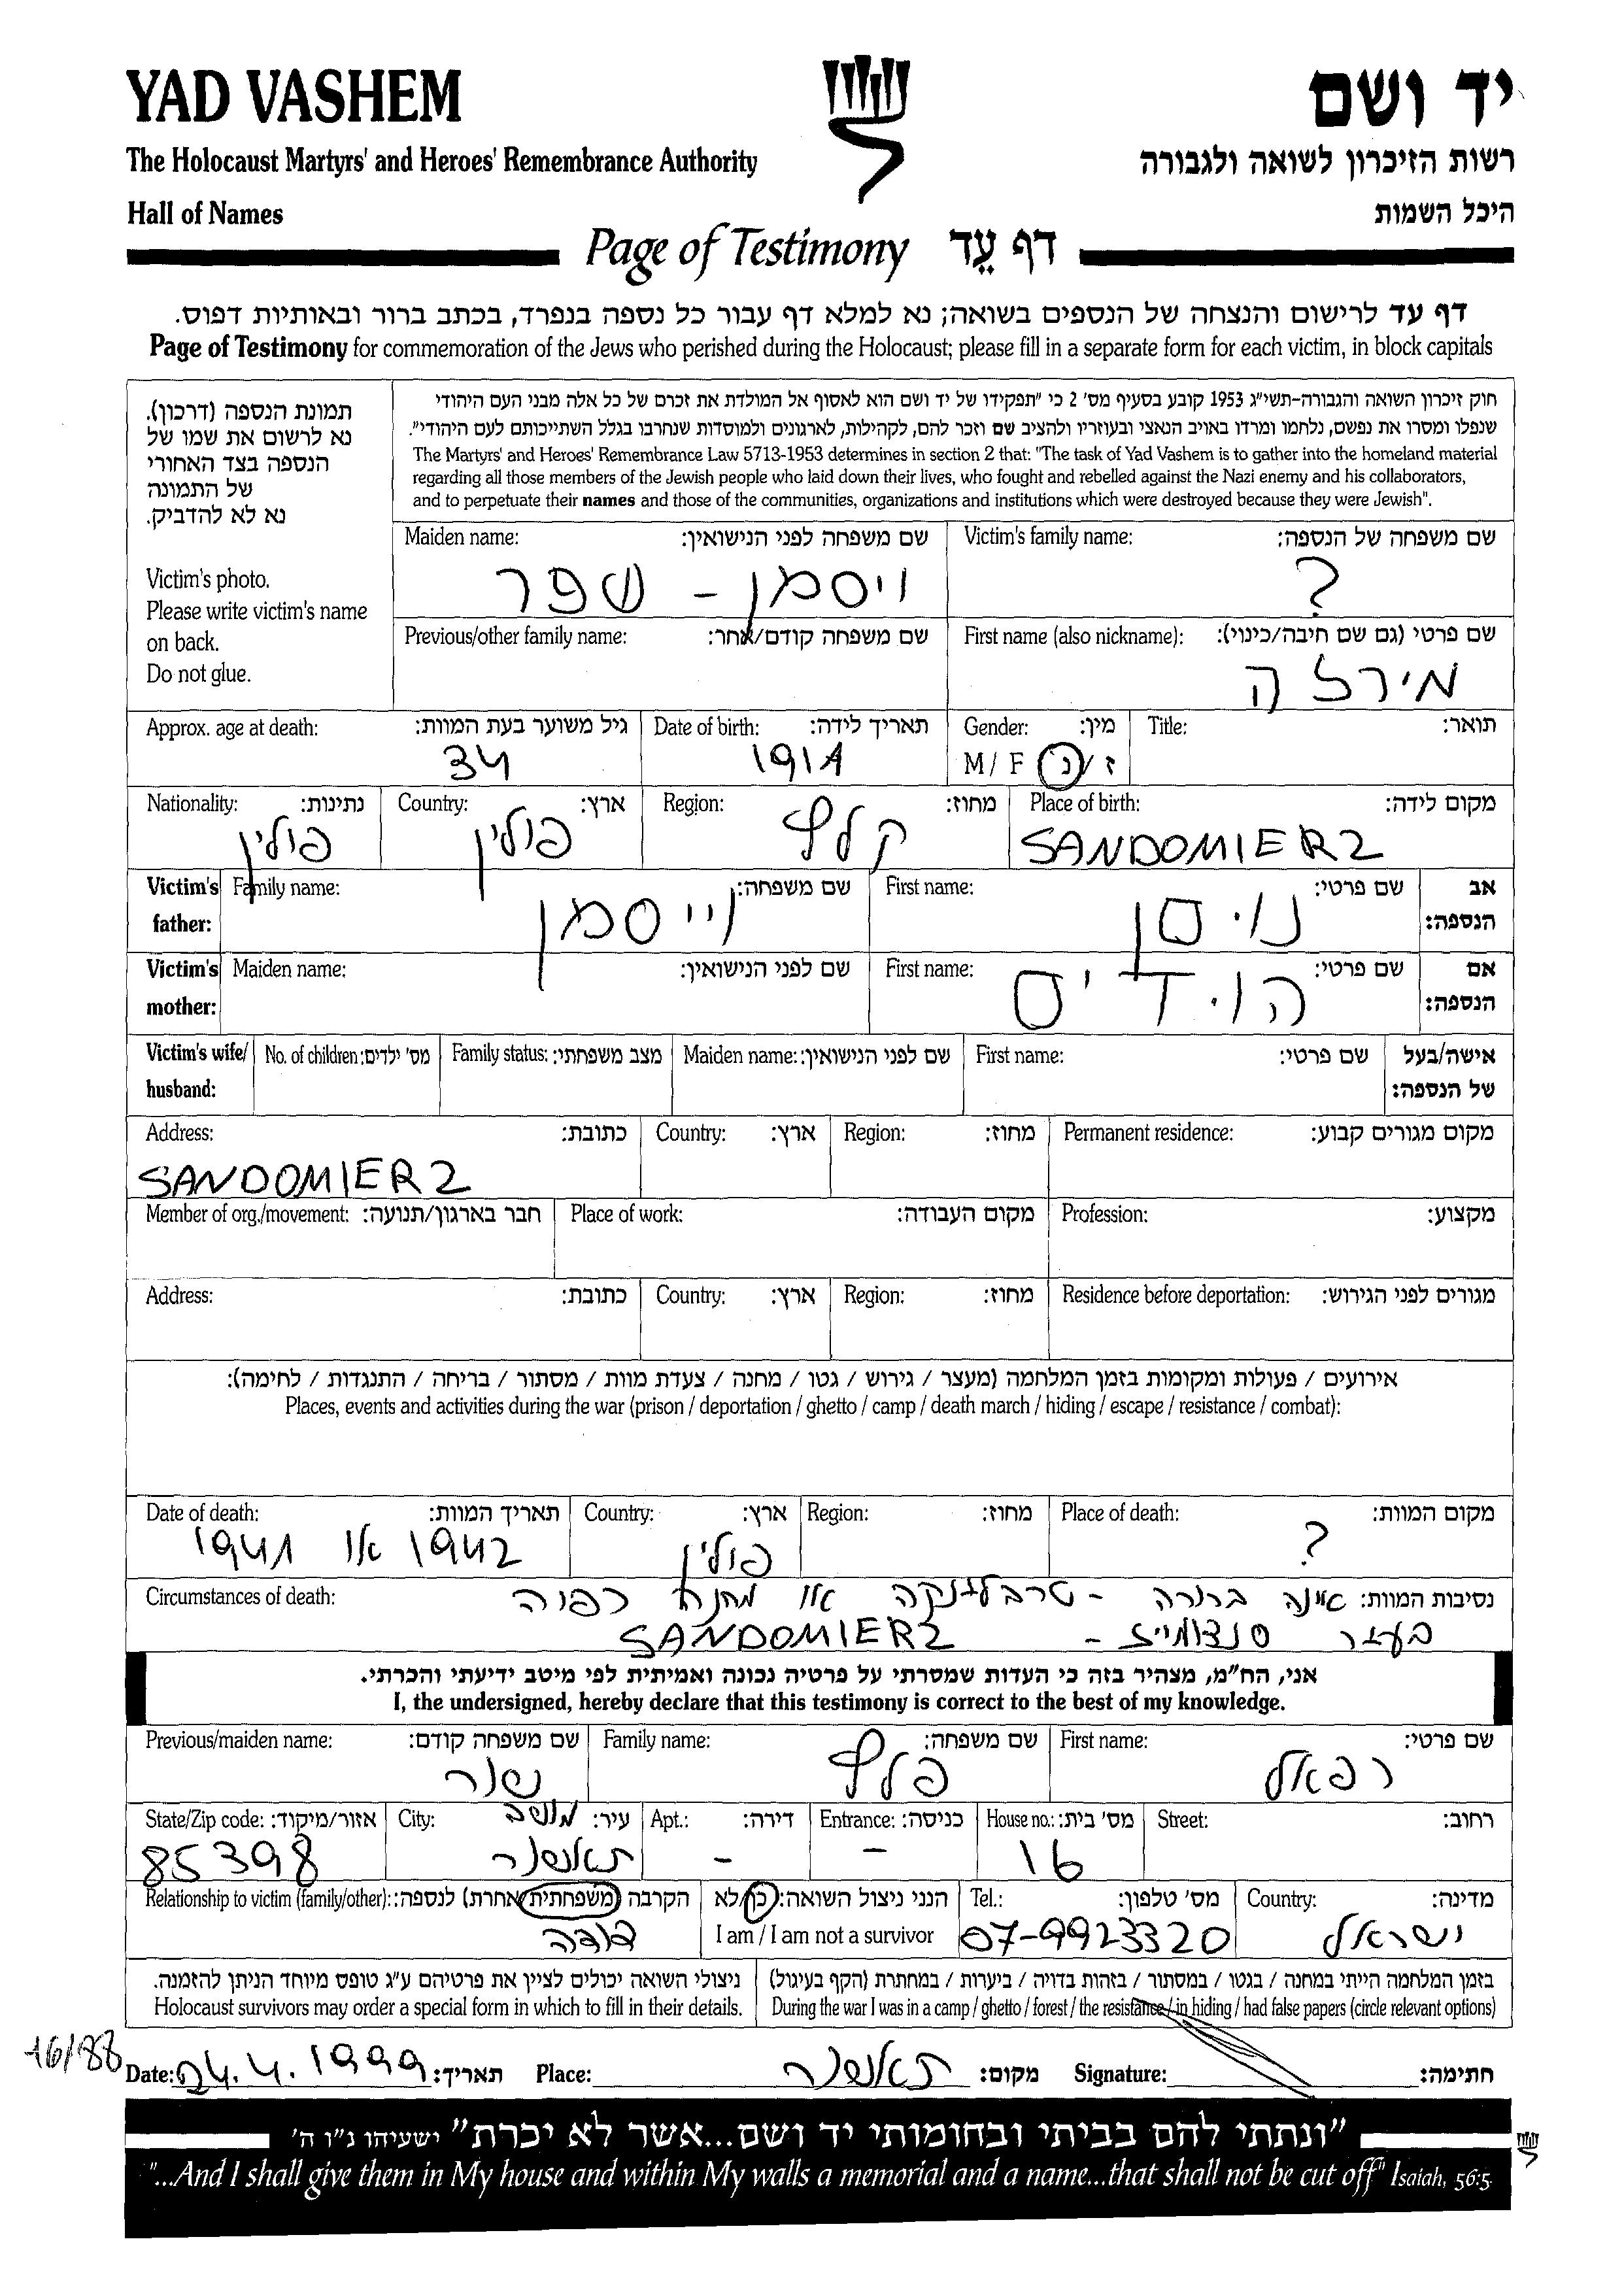 YAD VASHEM
יד ושם
The Holocaust Martyrs' and Heroes' Remembrance Authority
רשות הזיכרון לשואה ולגבורה
Hall of Names
היכל השמות
Page of Testimony דף עֵד
דף עד לרישום והנצחה של הנספים בשואה; נא למלא דף עבור כל נספה בנפרד, בכתב ברור ובאותיות דפוס.
Page of Testimony for commemoration of the Jews who perished during the Holocaust; please fill in a separate form for each victim, in block capitals
תמונת הנספה (דרכון).
נא לרשום את שמו של
הנספה בצד האחורי
של התמונה
נא לא להדביק.
Victim's photo.
Please write victim's name
on back.
Do not glue.
חוק זיכרון השואה והגבורה-תשי"ג 1953 קובע בסעיף מס' 2 כי "תפקידו של יד ושם הוא לאסוף אל המולדת את זכרם של כל אלה מבני העם היהודי
שנפלו ומסרו את נפשם, נלחמו ומרדו באויב הנאצי ובעוזריו ולהציב שם וזכר להם, לקהילות, לארגונים ולמוסדות שנחרבו בגלל השתייכותם לעם היהודי".
The Martyrs' and Heroes' Remembrance Law 5713-1953 determines in section 2 that: "The task of Yad Vashem is to gather into the homeland material
regarding all those members of the Jewish people who laid down their lives, who fought and rebelled against the Nazi enemy and his collaborators,
and to perpetuate their names and those of the communities, organizations and institutions which were destroyed because they were Jewish".
Victim's family name: שם משפחה של הנספה:
?
Maiden name: שם משפחה לפני הנישואין:
ויסמן - שפר
First name (also nickname): שם פרטי (גם שם חיבה/כינוי):
מירלה
Previous/other family name: שם משפחה קודם/אחר:
Title: תואר:
Gender: מין:
M / F ז / נ
Date of birth: תאריך לידה:
1917
Approx. age at death: גיל משוער בעת המוות:
34
Place of birth: מקום לידה:
SANDOMIERZ
Region: מחוז:
קלץ
Country: ארץ:
פולין
Nationality: נתינות:
פולין
Victim's father: אב הנספה:
First name: שם פרטי:
ניסן
Family name: שם משפחה:
וייסמן
Victim's mother: אם הנספה:
First name: שם פרטי:
Maiden name: שם לפני הנישואין:
Victim's wife/ husband: אישה/בעל של הנספה:
First name: שם פרטי:
Maiden name: שם לפני הנישואין:
Family status: מצב משפחתי:
No. of children: מס' ילדים:
Permanent residence: מקום מגורים קבוע:
Region: מחוז:
Country: ארץ:
Address: כתובת:
SANDOMIERZ
Profession: מקצוע:
Place of work: מקום העבודה:
Member of org./movement: חבר בארגון/תנועה:
Residence before deportation: מגורים לפני הגירוש:
Region: מחוז:
Country: ארץ:
Address: כתובת:
אירועים / פעולות ומקומות בזמן המלחמה (מעצר / גירוש / גטו / מחנה / צעדת מוות / מסתור / בריחה / התנגדות / לחימה):
Places, events and activities during the war (prison / deportation / ghetto / camp / death march / hiding / escape / resistance / combat):
Place of death: מקום המוות:
?
Region: מחוז:
Country: ארץ:
פולין
Date of death: תאריך המוות:
1942 או 1941
Circumstances of death: נסיבות המוות: אינה ברורה - טרבלינקה או מחנה כפיה
SANDOMIERZ -
אני, הח"מ, מצהיר בזה כי העדות שמסרתי על פרטיה נכונה ואמיתית לפי מיטב ידיעתי והכרתי.
I, the undersigned, hereby declare that this testimony is correct to the best of my knowledge.
First name: שם פרטי:
רפאל
Family name: שם משפחה:
פלץ
Previous/maiden name: שם משפחה קודם:
Street: רחוב:
House no.: מס' בית:
16
Entrance: כניסה:
-
Apt.: דירה:
-
City: עיר: מושב
תאשור
State/Zip code: אזור/מיקוד:
85398
Country: מדינה:
ישראל
Tel.: מס' טלפון:
07-9923320
הנני ניצול השואה: כן/לא
I am / I am not a survivor
Relationship to victim (family/other): הקרבה (משפחתית/אחרת) לנספה:
דודה
בזמן המלחמה הייתי במחנה / בגטו / במסתור / בזהות בדויה / ביערות / במחתרת (הקף בעיגול)
During the war I was in a camp / ghetto / forest / the resistance / in hiding / had false papers (circle relevant options)
ניצולי השואה יכולים לציין את פרטיהם ע"ג טופס מיוחד הניתן להזמנה.
Holocaust survivors may order a special form in which to fill in their details.
16/88
Date: 24.4.1999 תאריך: Place: תאשור מקום: Signature: חתימה:
"ונתתי להם בביתי ובחומותי יד ושם...אשר לא יכרת" ישעיהו נ"ו ה'
"...And I shall give them in My house and within My walls a memorial and a name...that shall not be cut off" Isaiah, 56:5.